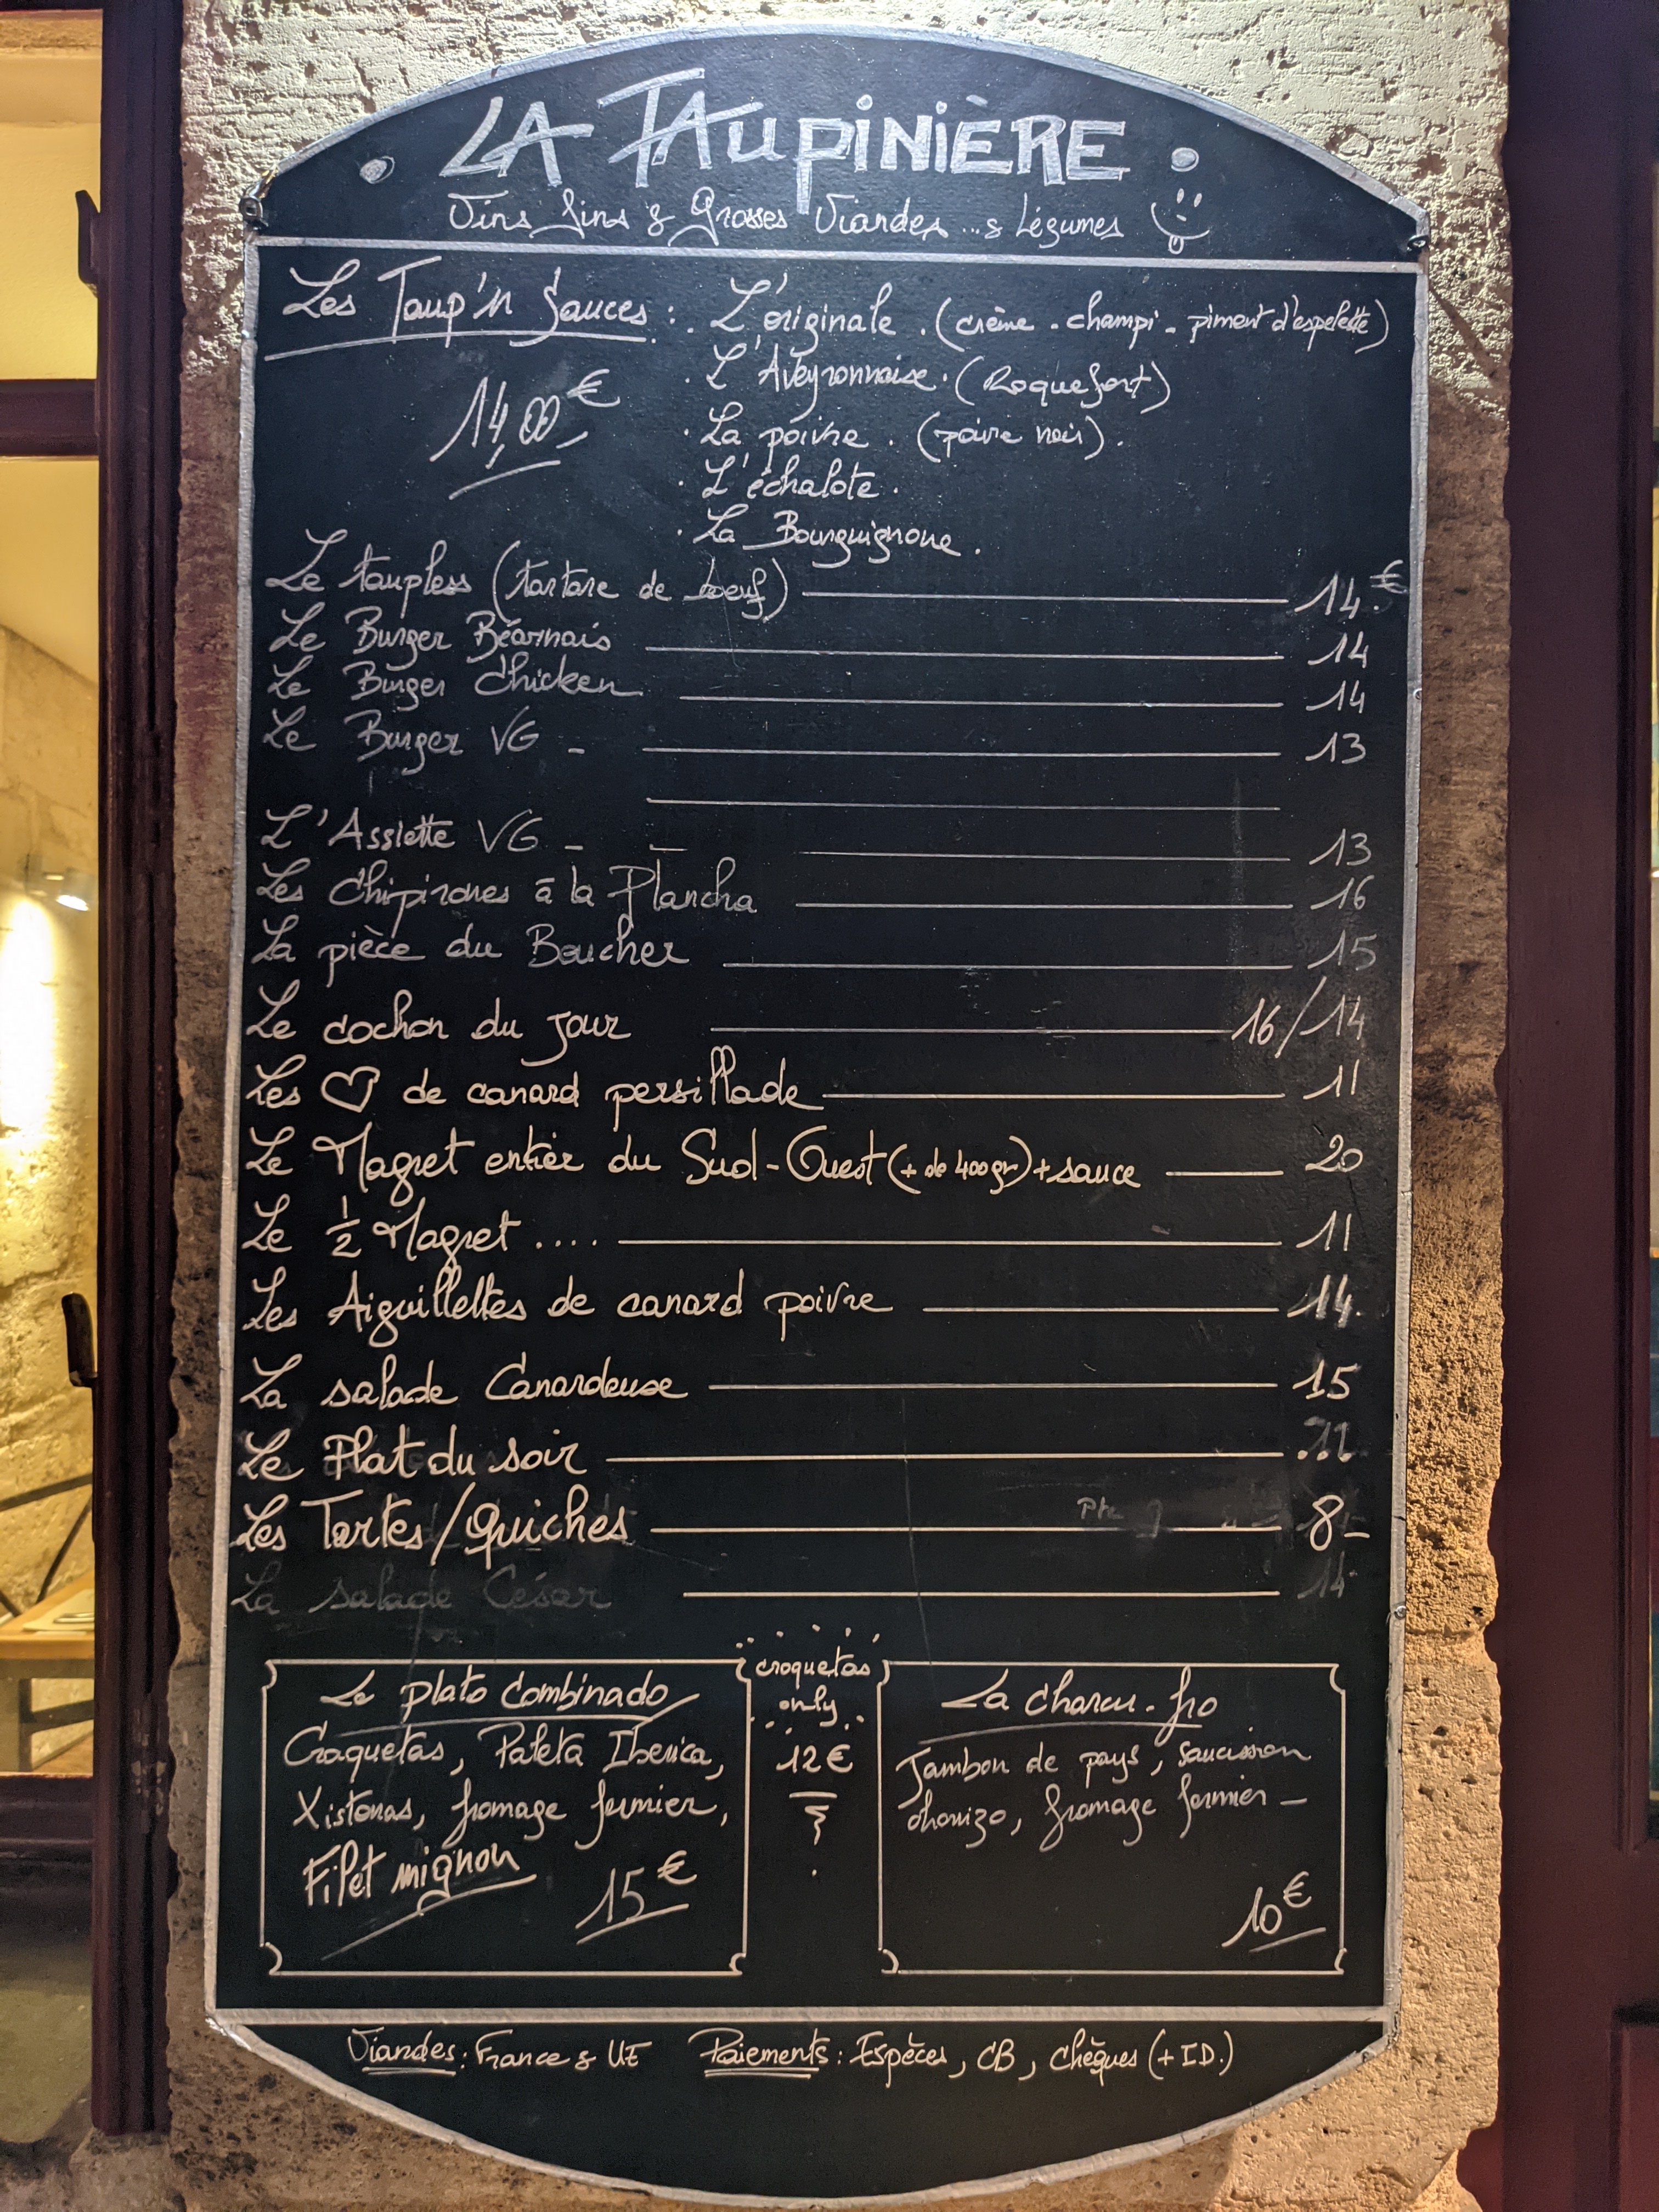 • LA TAUPINIÈRE •
Vins fins & Grosses Viandes ... & Légumes
Les Taup'in Sauces : . L'originale . (crème - champi - piment d'espelette)
14,00€
. L'Aveyronnaise . (Roquefort)
. La poivre . (poivre noir) .
. L'échalote .
. La Bourguignone .
Le taupless (tartare de boeuf) 14.€
Le Burger Béarnais 14
Le Burger Chicken 14
Le Burger VG - 13
L'Assiette VG - 13
Les Chipirones à la Plancha 16
La pièce du Boucher 15
Le cochon du jour 16/14
Les ♡ de canard persillade 11
Le Magret entier du Sud-Ouest (+ de 400gr) + sauce 20
Le 1/2 Magret .... 11
Les Aiguillettes de canard poivre 14.
La salade Canardeuse 15
Le Plat du soir
Les Tartes/Quiches 8-
La salade César 14
Le plato Combinado
Croquetas, Paleta Iberica,
Xistoras, fromage fermier,
Filet mignon
15€
croquetas
only
12€
La charcu-fro
Jambon de pays, saucisson
chorizo, fromage fermier -
10€
Viandes : France & UE Paiements : Espèces, CB, chèques (+ ID.)